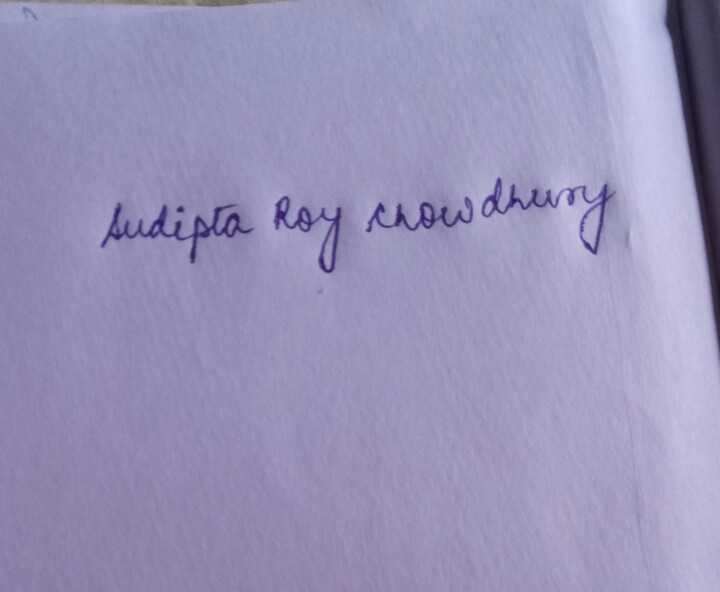 Sudipta Roy Chowdhury